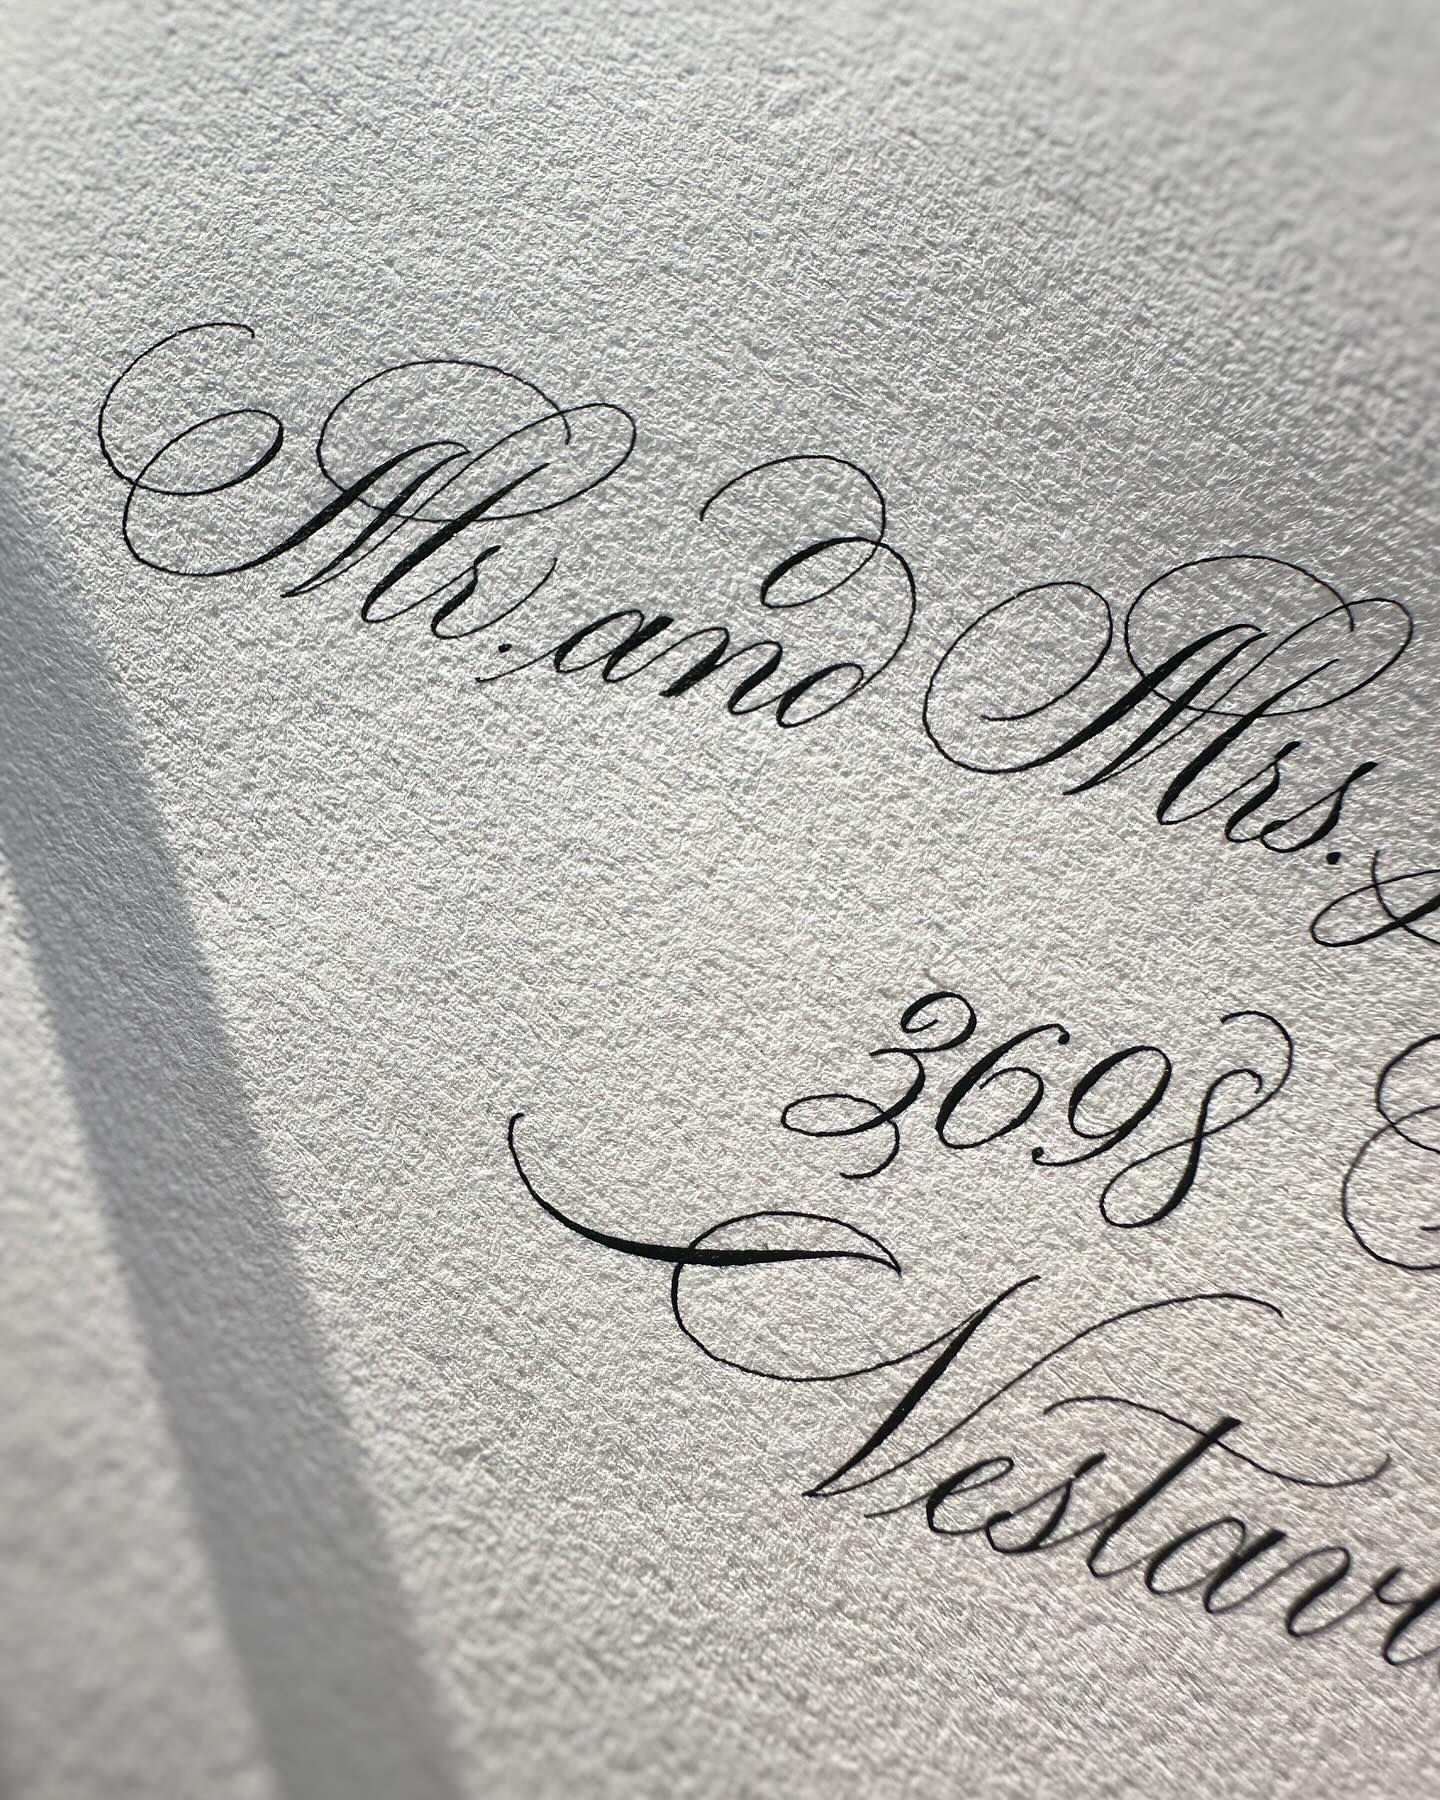 Mr. and Mrs.
3698
Vestavi